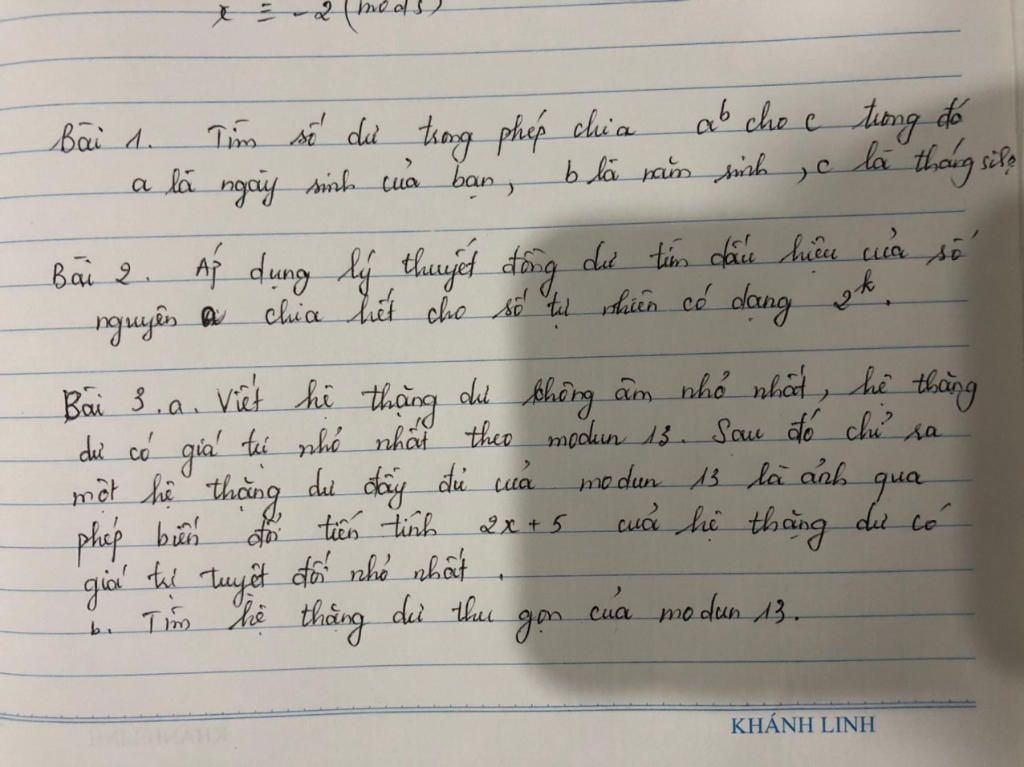 x ≡ -2 (mod 5)
Bài 1. Tìm số dư trong phép chia a^b cho c trong đó
a là ngày sinh của bạn, b là năm sinh, c là tháng sinh
Bài 2. Áp dụng lý thuyết đồng dư tìm dấu hiệu của số
nguyên a chia hết cho số tự nhiên có dạng 2^k.
Bài 3.a. Viết hệ thặng dư không âm nhỏ nhất, hệ thặng
dư có giá trị nhỏ nhất theo modun 13. Sau đó chỉ ra
một hệ thặng dư đầy đủ của modun 13 là ảnh qua
phép biến đổi tiến tính 2x+5 của hệ thặng dư có
giá trị tuyệt đối nhỏ nhất.
b. Tìm hệ thặng dư thu gọn của modun 13.
KHÁNH LINH